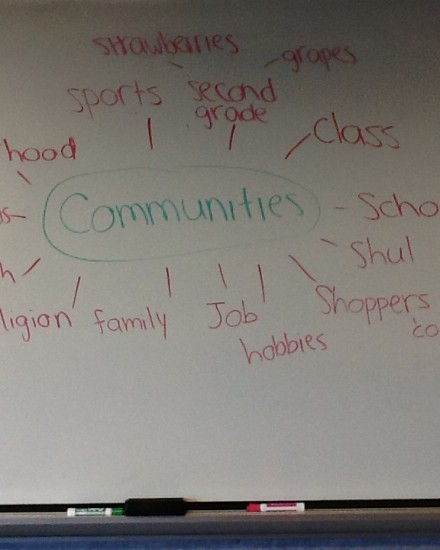 strawberries
grapes
sports
second
grade
Class
hood
Communities
Scho
Shul
ligion
family
Job
Shoppers
hobbies
co